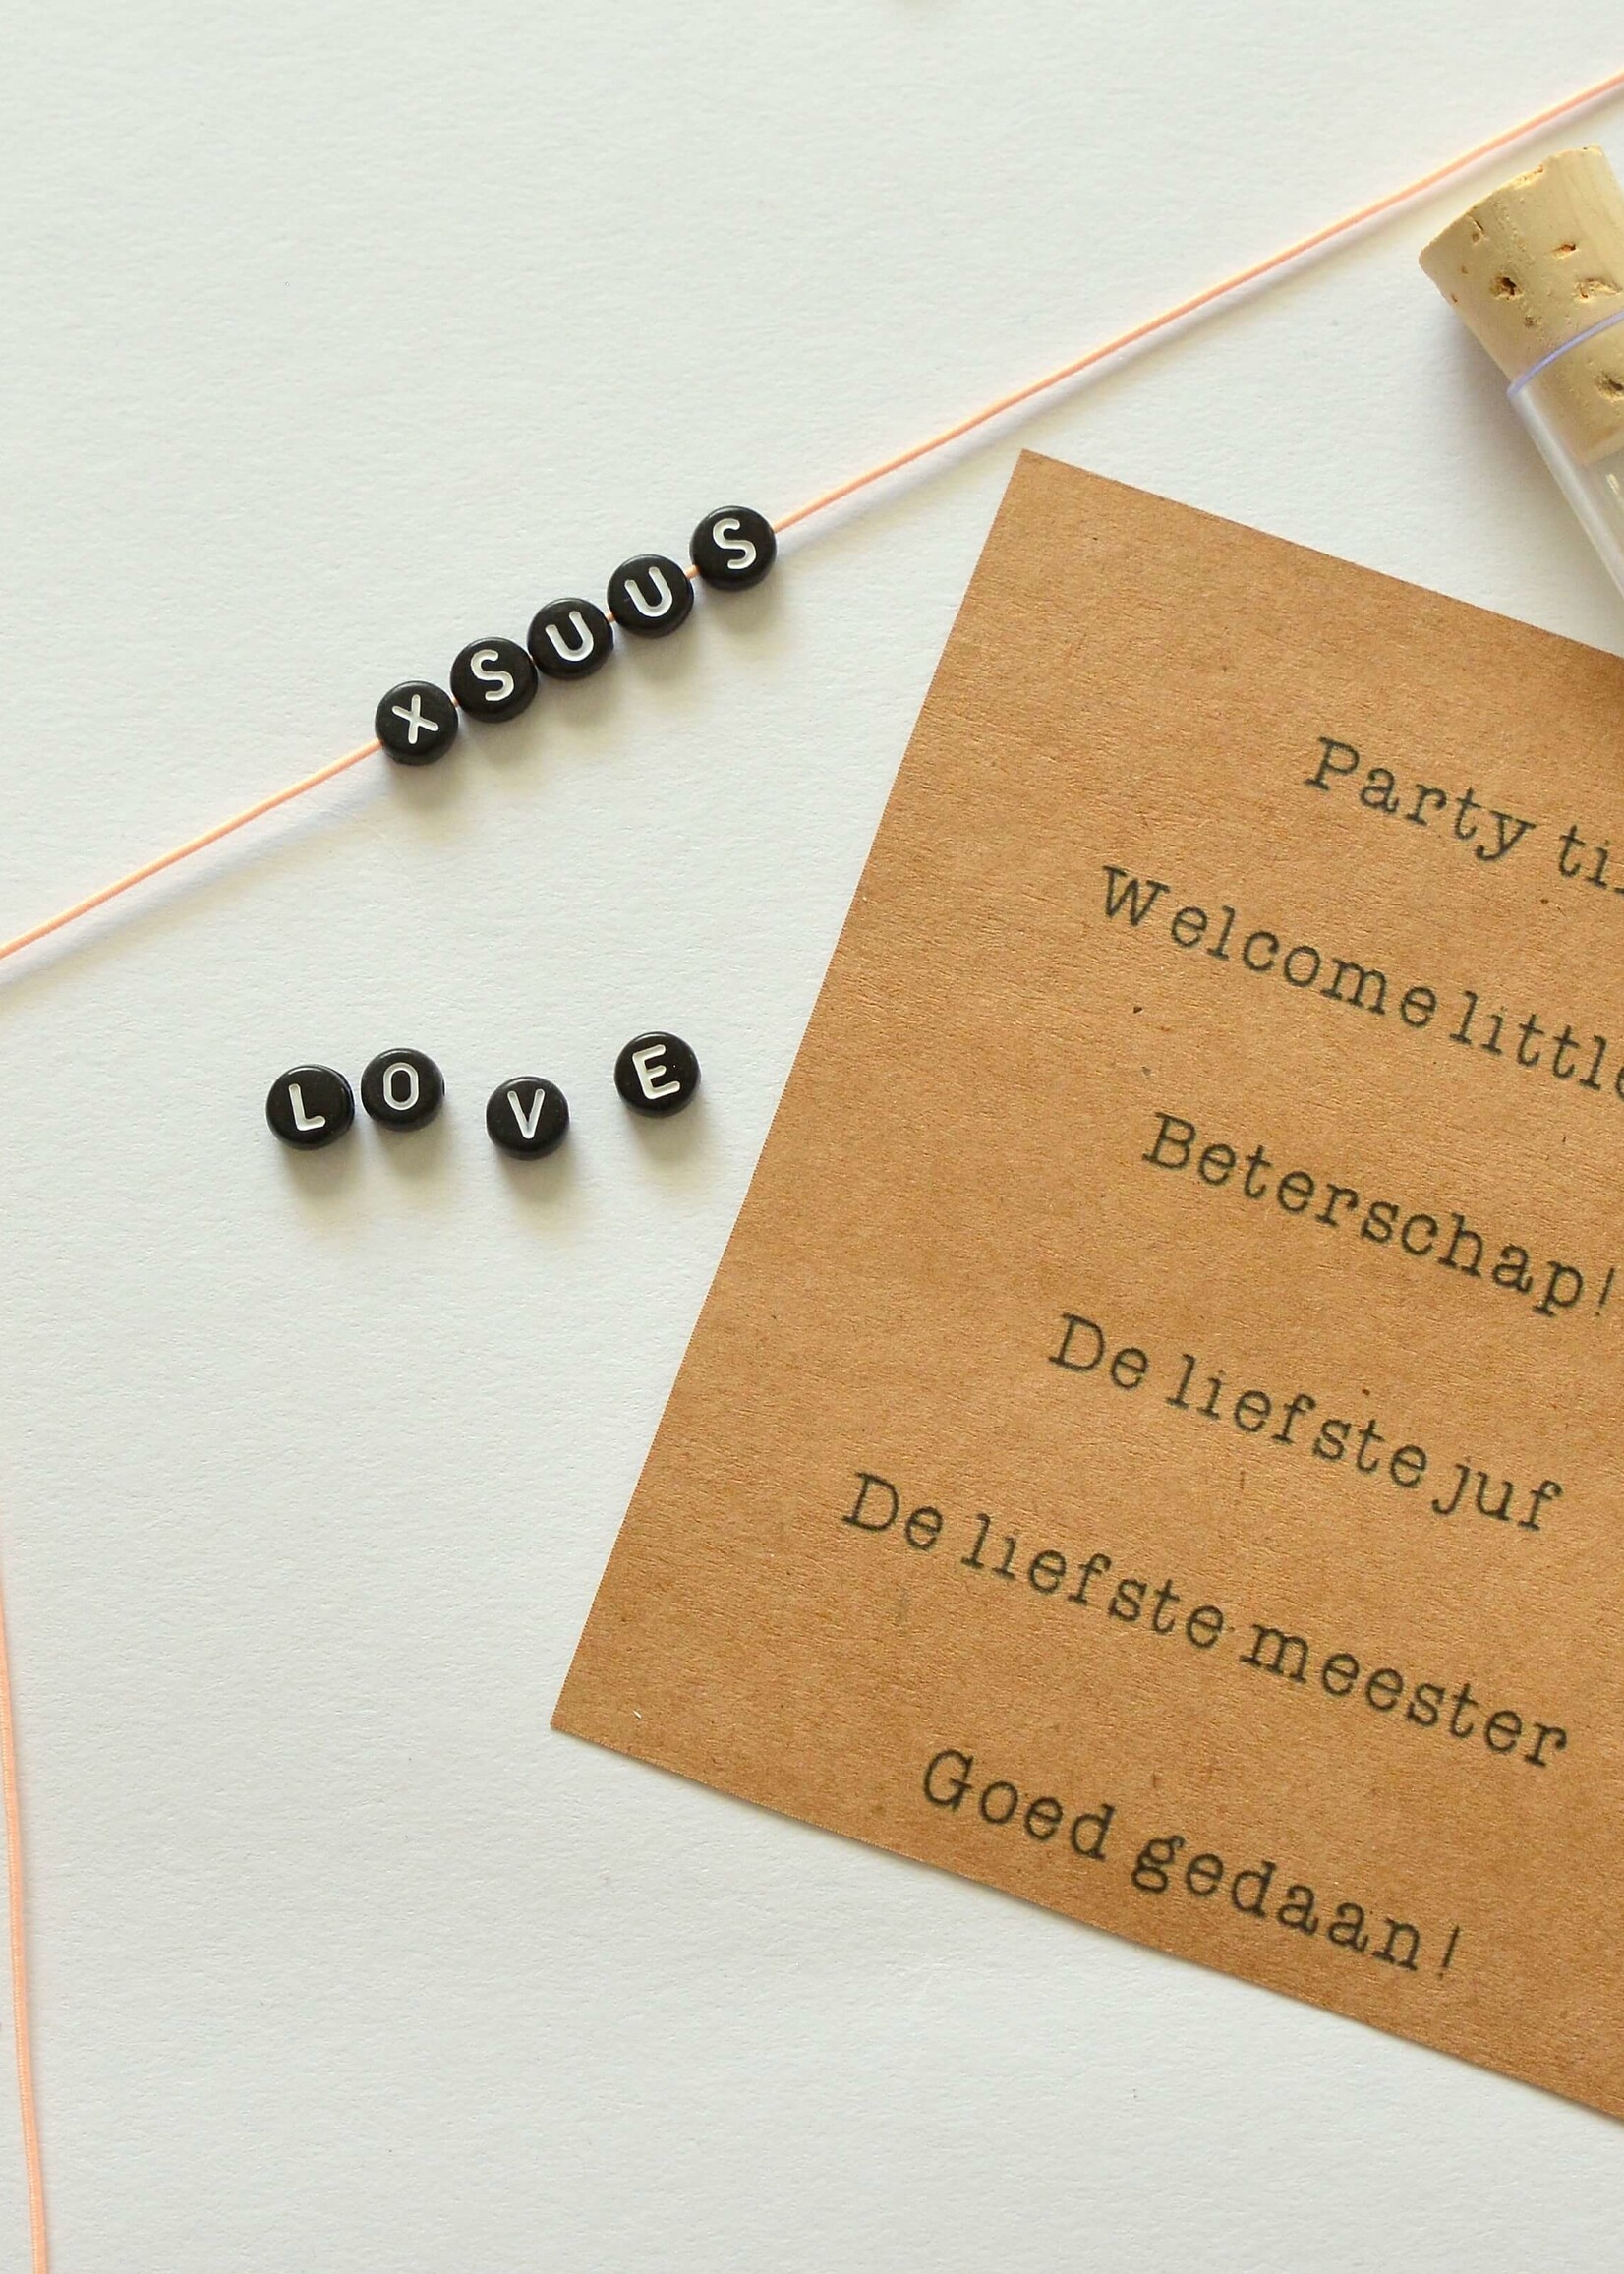 XSUUS
LOVE
Party
Welcome little
Beterschap!
De liefste juf
De liefste meester
Goed gedaan!